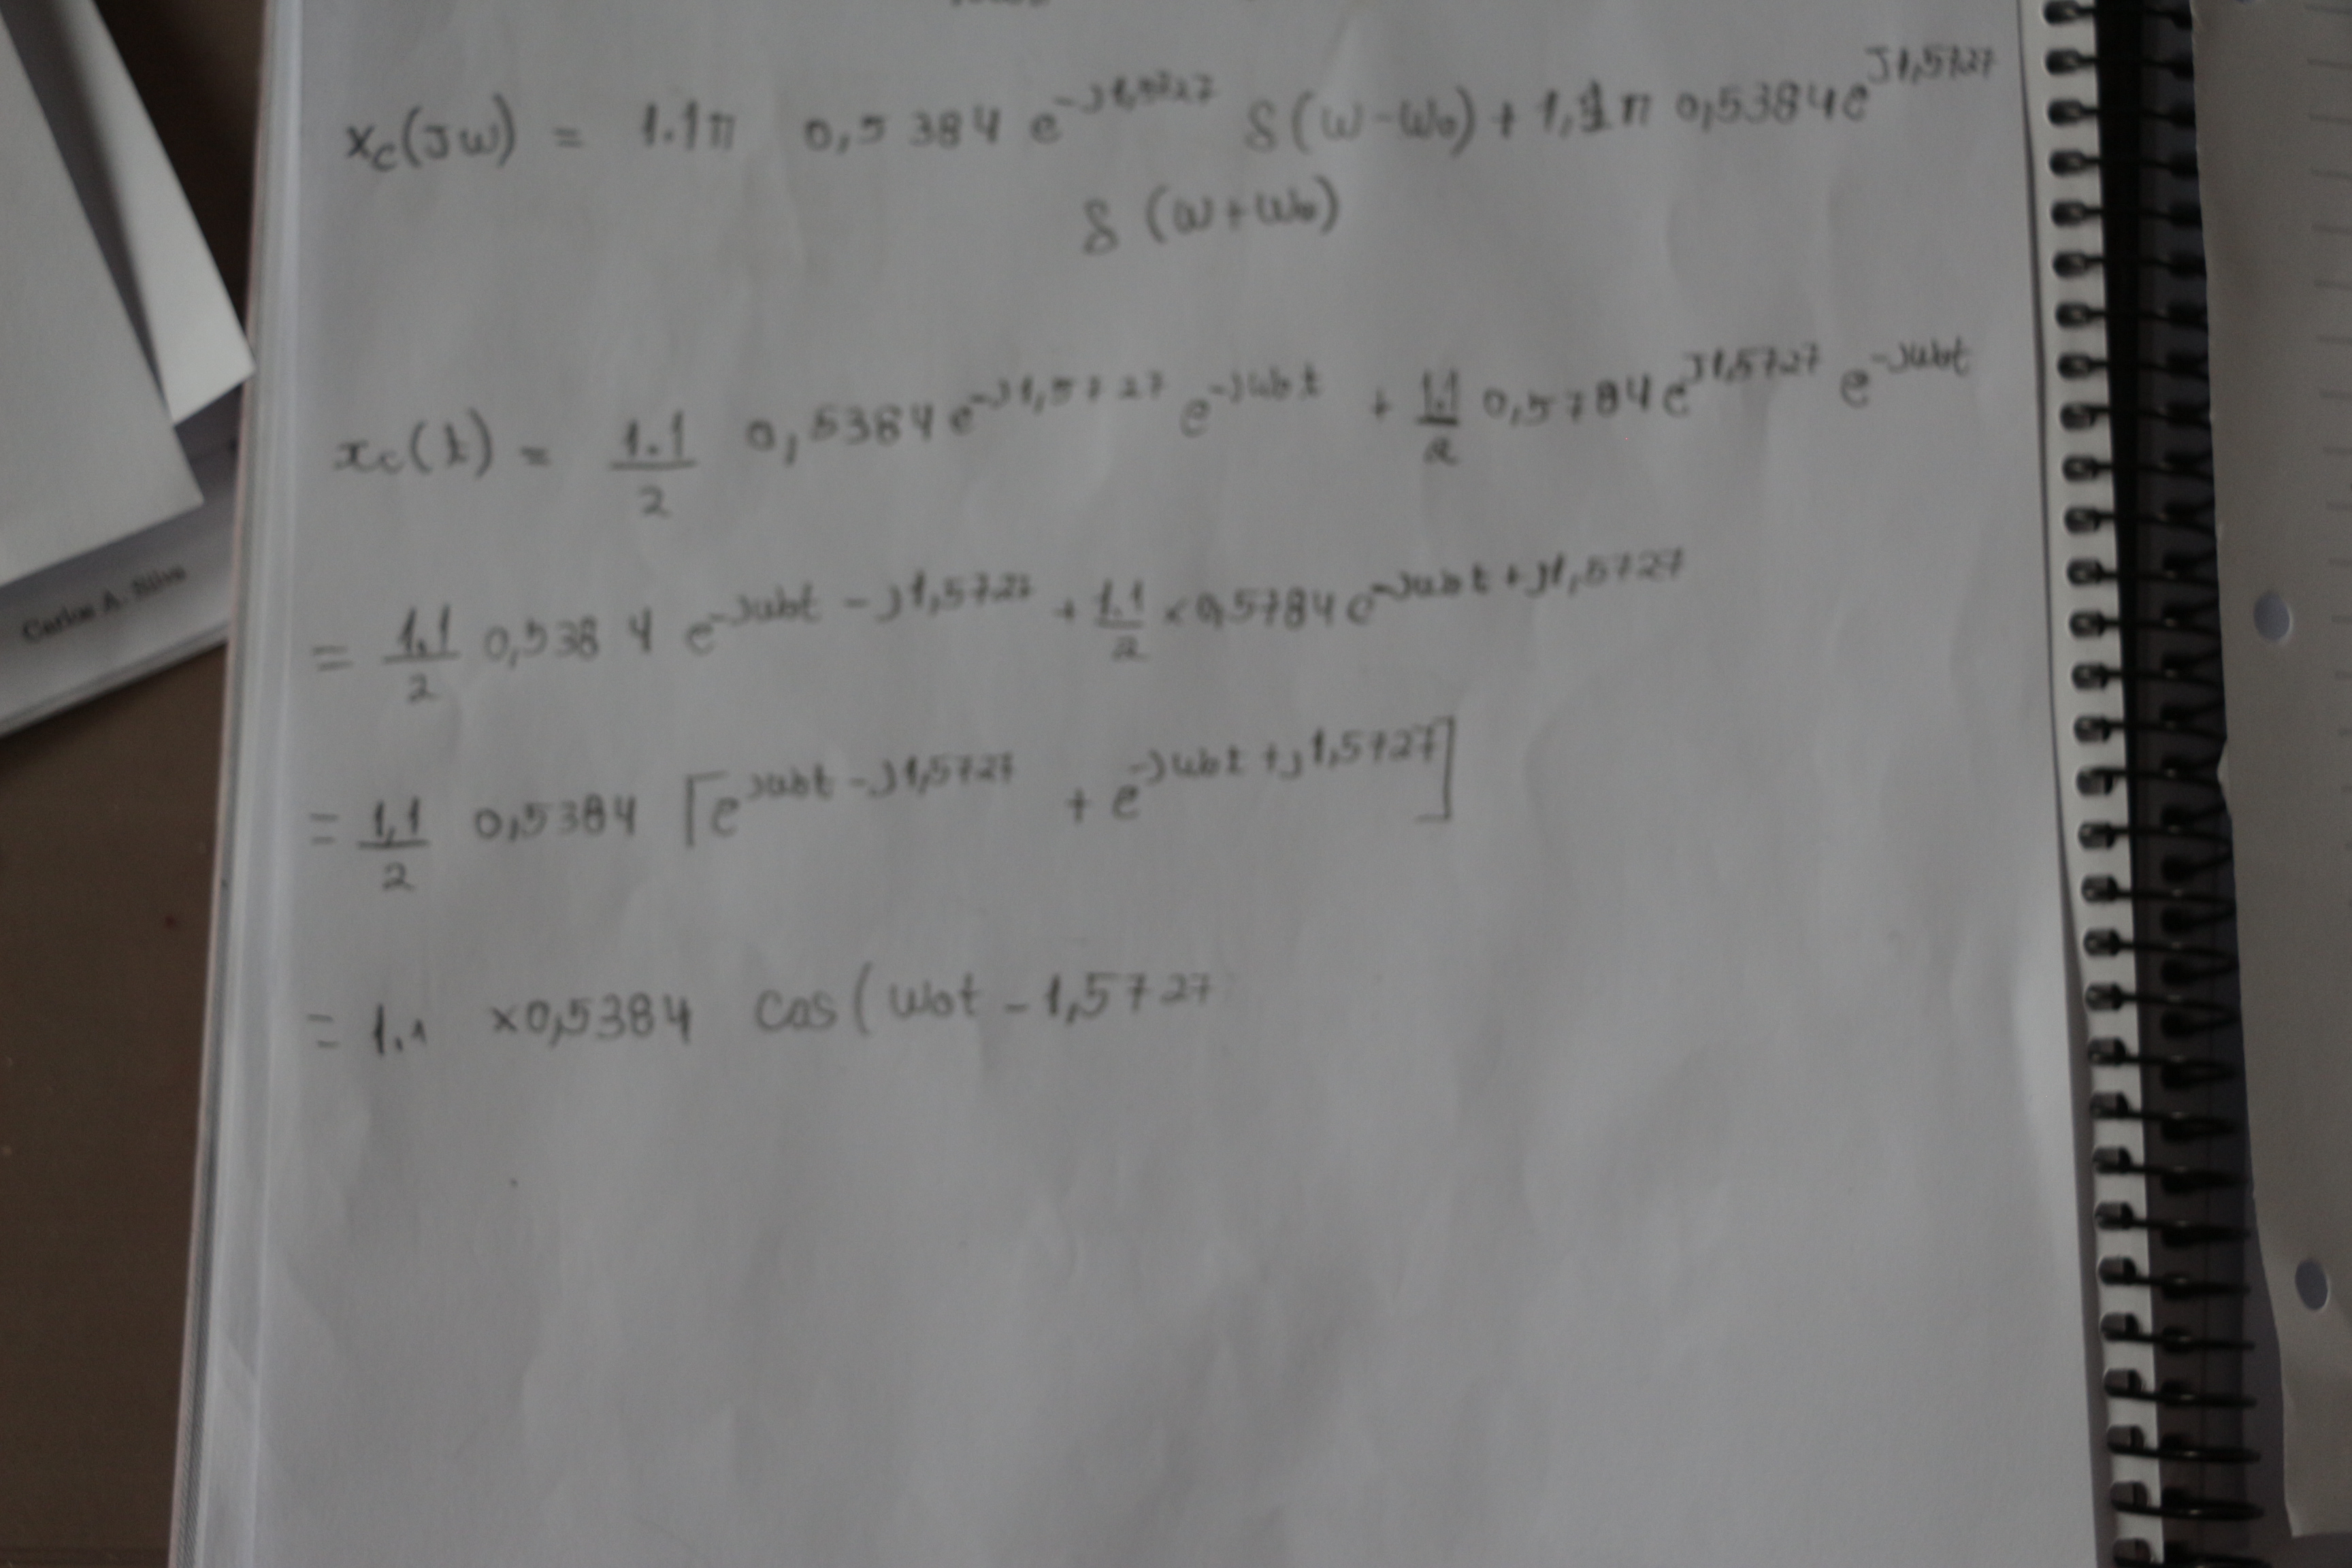 Xc(Jω) = 1.1π 0,5384 e^-J1,5727 δ(ω-ω0) + 1,1π 0,5384 e^J1,5727
δ(ω+ω0)
xc(t) = 1.1/2 0,5384 e^-J1,5727 e^-Jω0t + 1.1/2 0,5784 e^J1,5727 e^-Jω0t
= 1.1/2 0,5384 e^-Jω0t-J1,5727 + 1.1/2 × 0,5784 e^-Jω0t+J1,5727
= 1,1/2 0,5384 [e^Jω0t-J1,5727 + e^-Jω0t+J1,5727]
= 1.1 ×0,5384 cos(ω0t - 1,5727
Carlos A. Silva